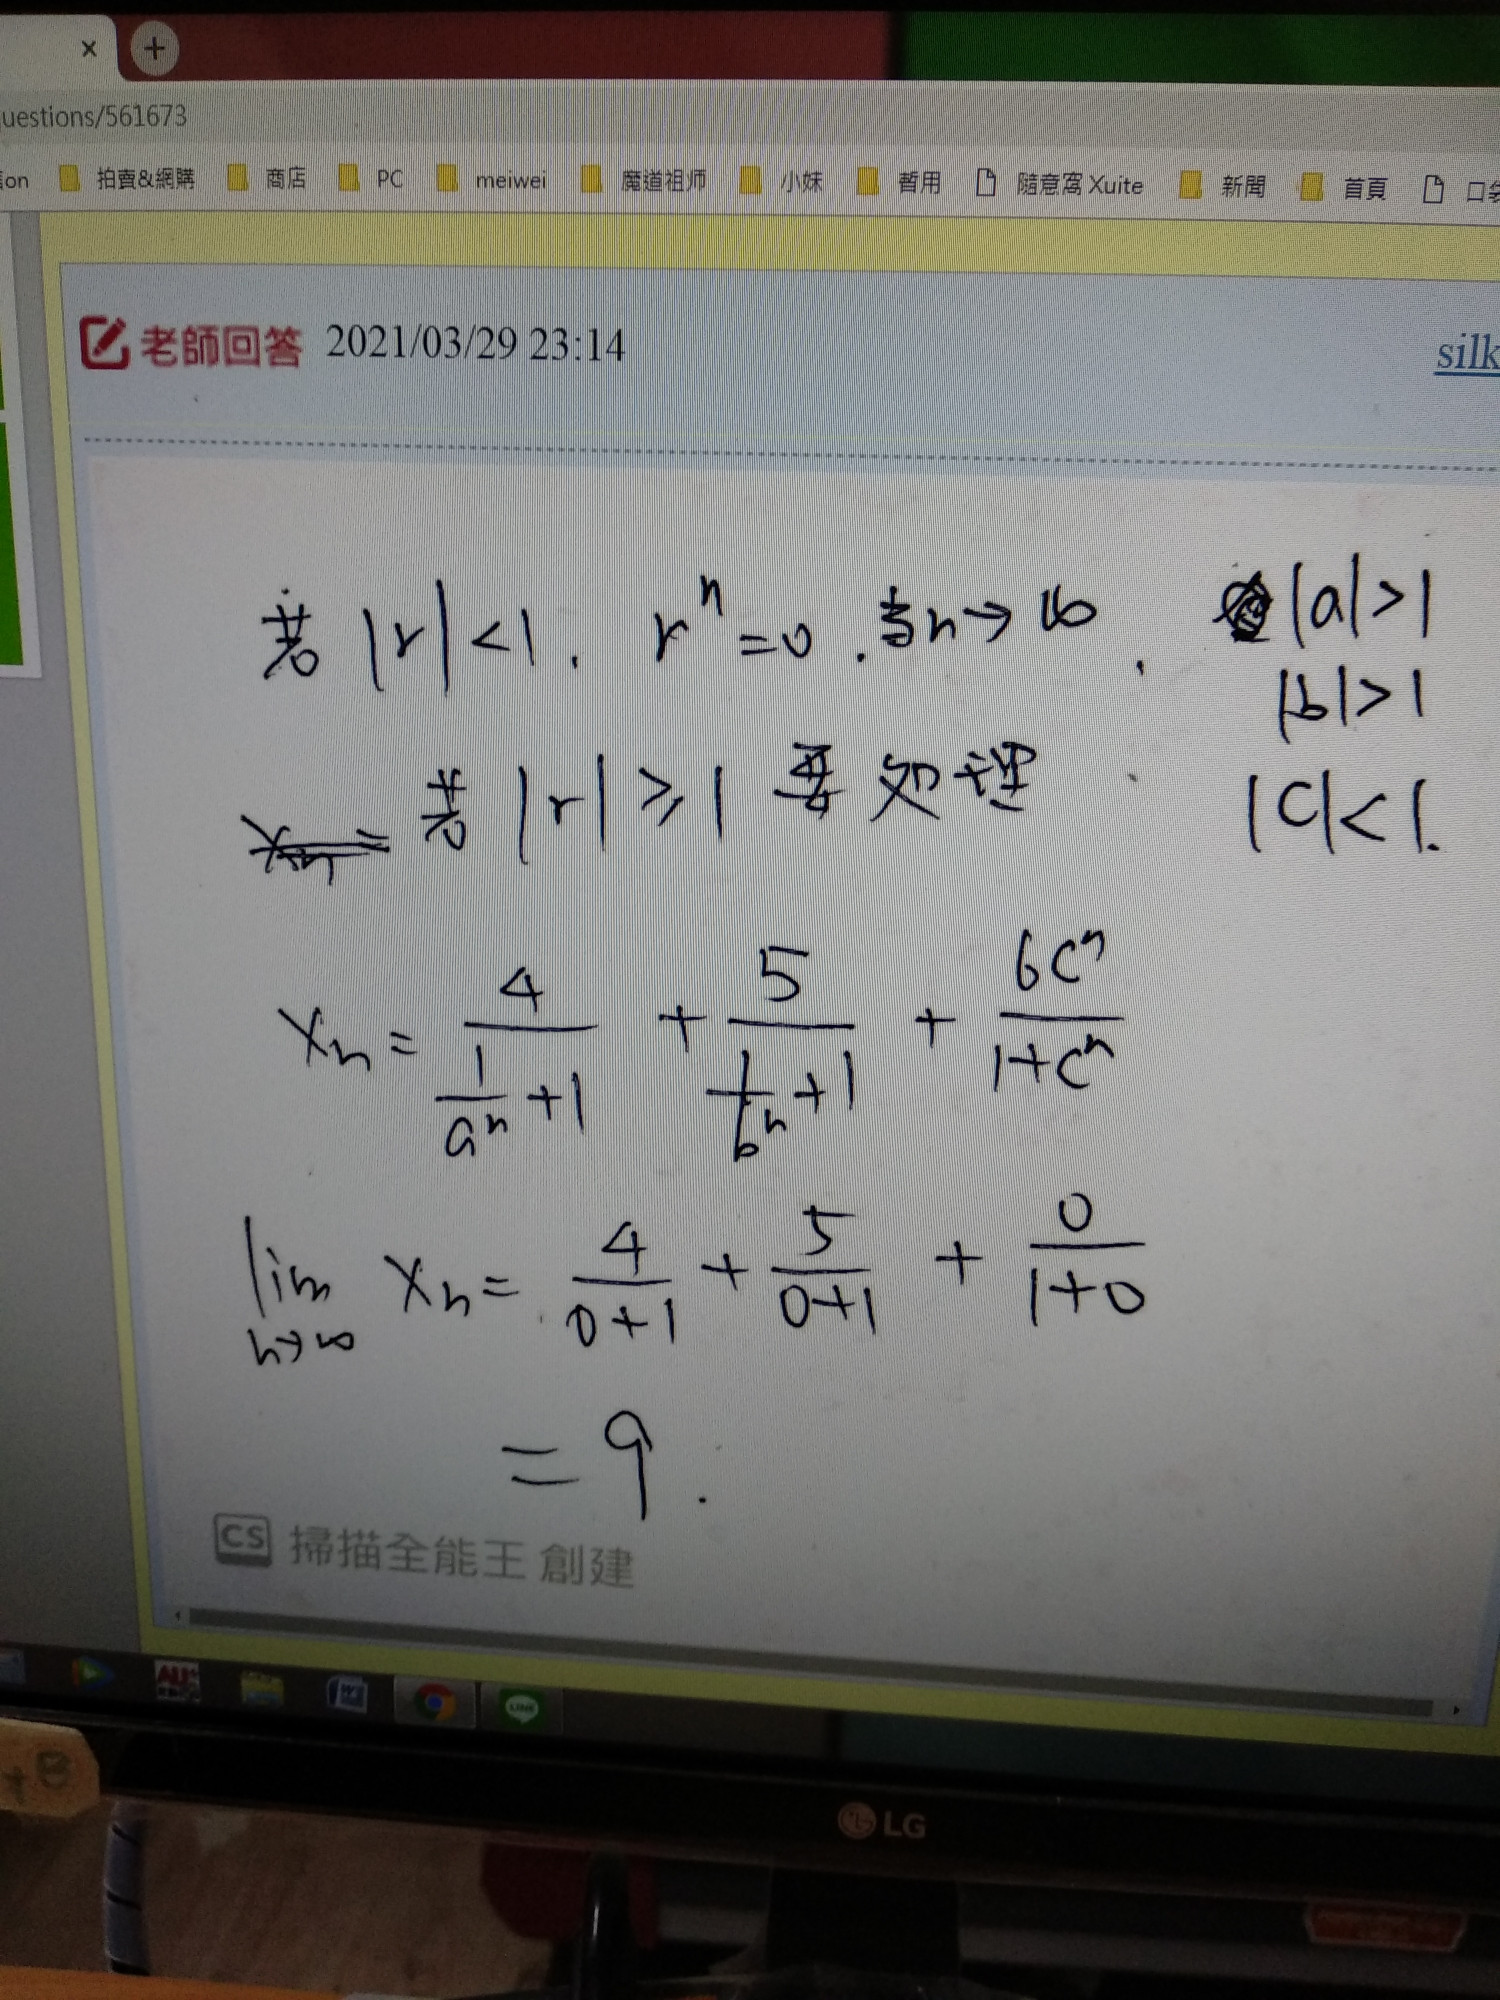 uestions/561673
on 拍賣&網購 商店 PC meiwei 魔道祖师 小妹 暫用 隨意窩 Xuite 新聞 首頁 口袋
老師回答 2021/03/29 23:14 silk
若 |r| < 1. rⁿ = 0 . 當n→∞ . |a| > 1
|b| > 1
若 |r| ≥ 1 要處理 |c| < 1.
xₙ = 4/(1/aⁿ + 1) + 5/(1/bⁿ + 1) + 6cⁿ/(1+cⁿ)
lim n→∞ xₙ = 4/(0+1) + 5/(0+1) + 0/(1+0)
= 9 .
CS 掃描全能王 創建
LG